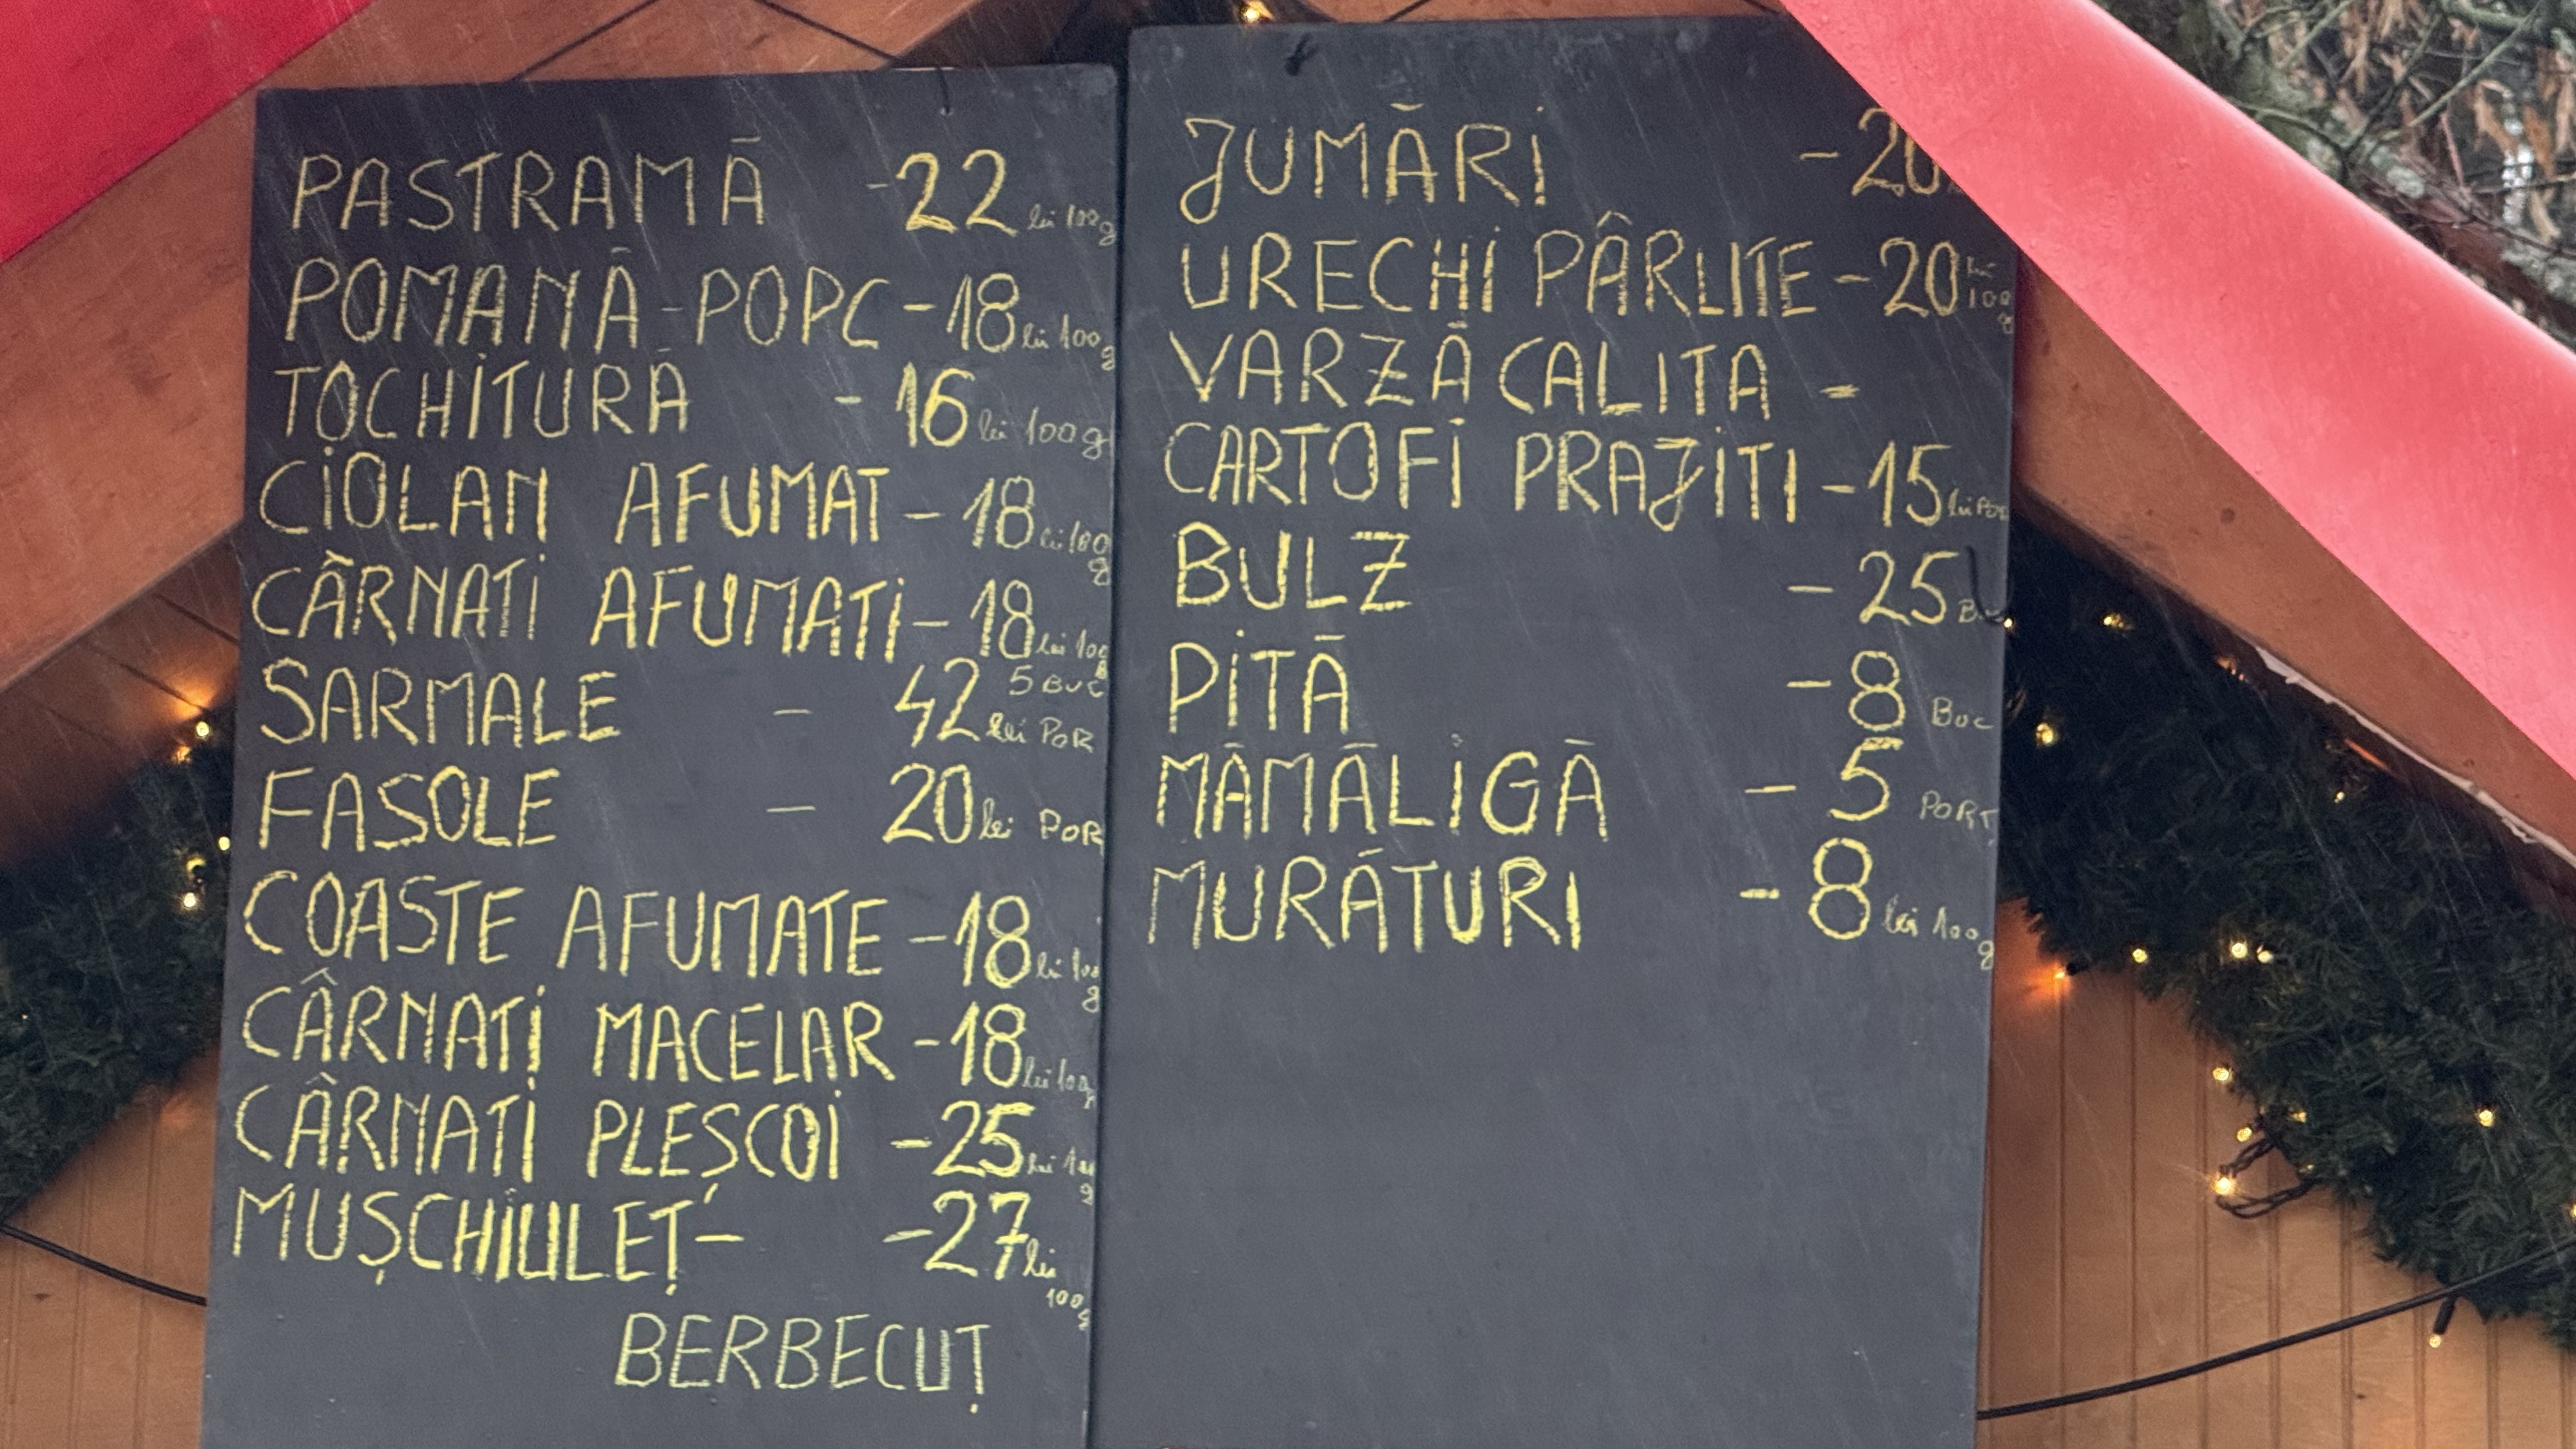 PASTRAMĂ -22 lei 100g
POMANĂ-POPC -18 lei 100g
TOCHITURĂ - 16 lei 100g
CIOLAN AFUMAT - 18 lei 100g
CÂRNATI AFUMATI - 18 lei 100g
SARMALE - 42 5 BUC lei POR
FASOLE - 20 lei POR
COASTE AFUMATE -18 lei 100g
CÂRNATI MACELAR -18 lei 100g
CÂRNATI PLEȘCOI -25 lei 100g
MUȘCHIULEȚ- -27 lei 100g
BERBECUȚ
JUMĂRI - 20
URECHI PÂRLITE - 20 lei 100g
VARZĂ CALITA -
CARTOFI PRAJITI - 15 lei POR
BULZ - 25
PITĂ - 8 BUC
MĂMĂLIGĂ - 5 PORT
MURĂTURI - 8 lei 100g